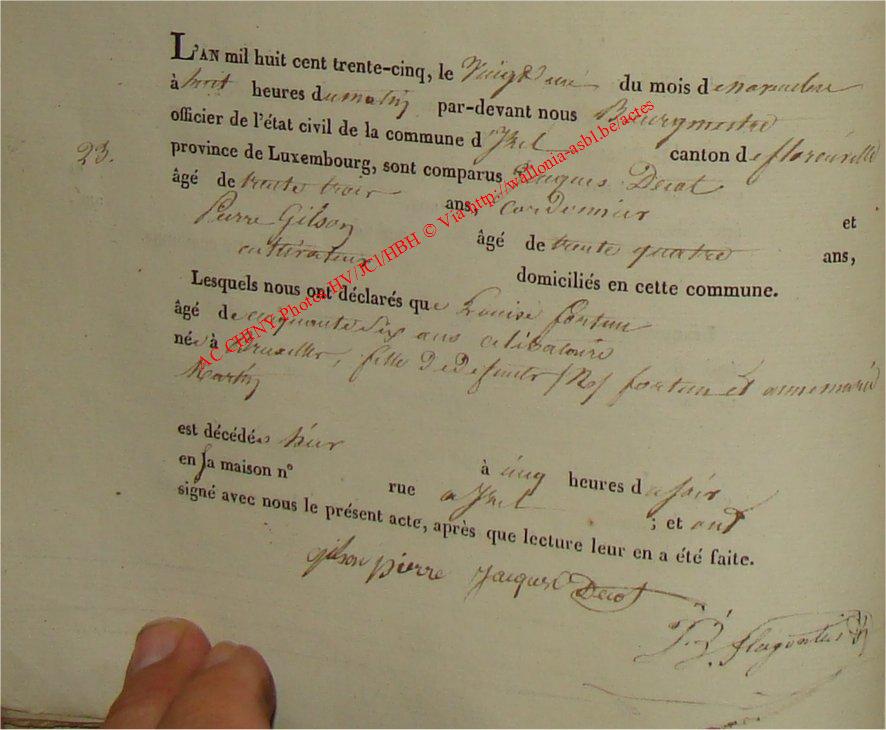 L'AN mil huit cent trente-cinq, le Vingt du mois de novembre
à huit heures du matin par-devant nous Bourgmestre
officier de l'état civil de la commune d'Izel canton de florenville
23.
province de Luxembourg, sont comparus Jacques Decot
âgé de trente trois ans, cordonnier et
Pierre Gilson âgé de trente quatre ans,
cultivateur domiciliés en cette commune.
Lesquels nous ont déclarés que Louise fortun
âgé de cinquante six ans celibatoire
née à Bruxelles, fille de defunts (N) fortun et annemarie
Martin
est décédée hier à cinq heures du soir
en sa maison n° rue a Izel ; et ont
signé avec nous le présent acte, après que lecture leur en a été faite.
gilson pierre Jacques Decot
AC CHINY Photos HV/JCl/HBH © Via http://wallonia-asbl.be/actes